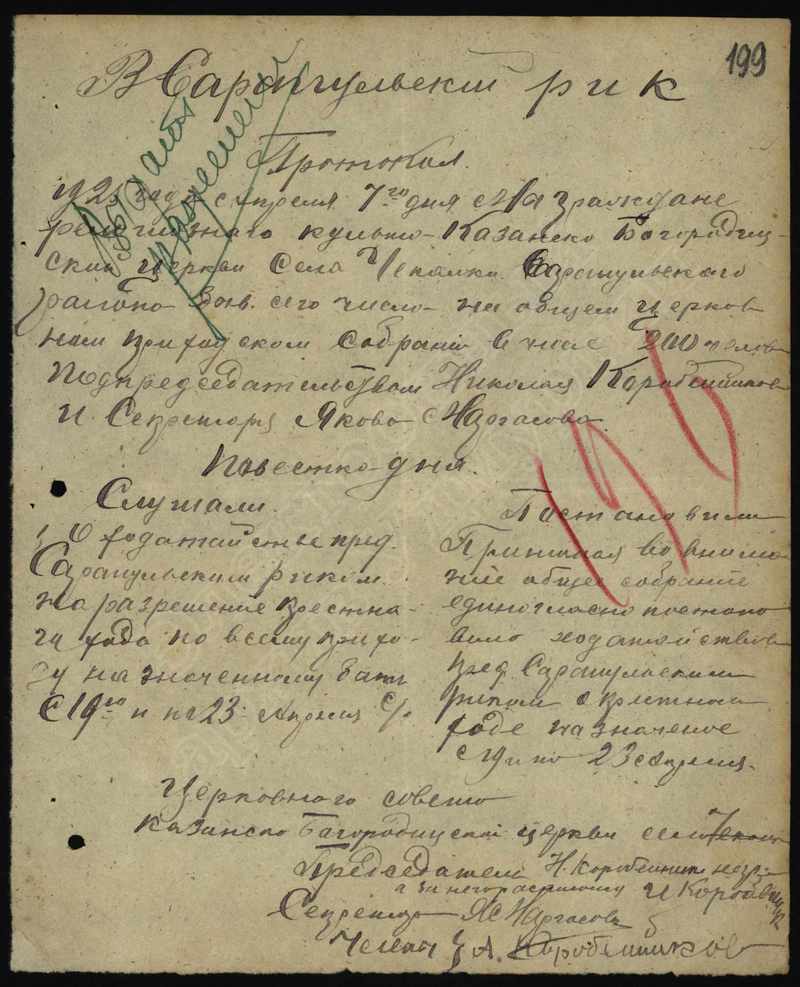 199
В Сарапульский рик
Выдать
разрешение
Протокол
1925 года Апреля 7го дня Мы граждане
религиозного культа Казанско Богородиц-
ской церкви села Чекалки Сарапульского
района сего число на общем церков
ном приходском собрании в числе 200 челов
под председательством Николая Коробейников
и Секретаря Якова Наргасова
Повестка дня.
Слушали.
1 О ходатайстве пред
Сарапульским риком
на разрешение крестна-
го хода по всему прихо-
ду назначенному быть
С 19го и по 23 Апреля с/г
Постановили
Принимая во внима
ние общее собрание
единогласно постано
вило ходатайствов
пред Сарапульским
риком о крестном
ходе назначеное
с 19 и по 23 Апреля.
195
Церковного совета
Казанско Богородицской церкви села
Председатель Н. Коробейник негр.
а за него расписался И Коробейник
Секретарь Я Наргасов
Члены А. Коробейников